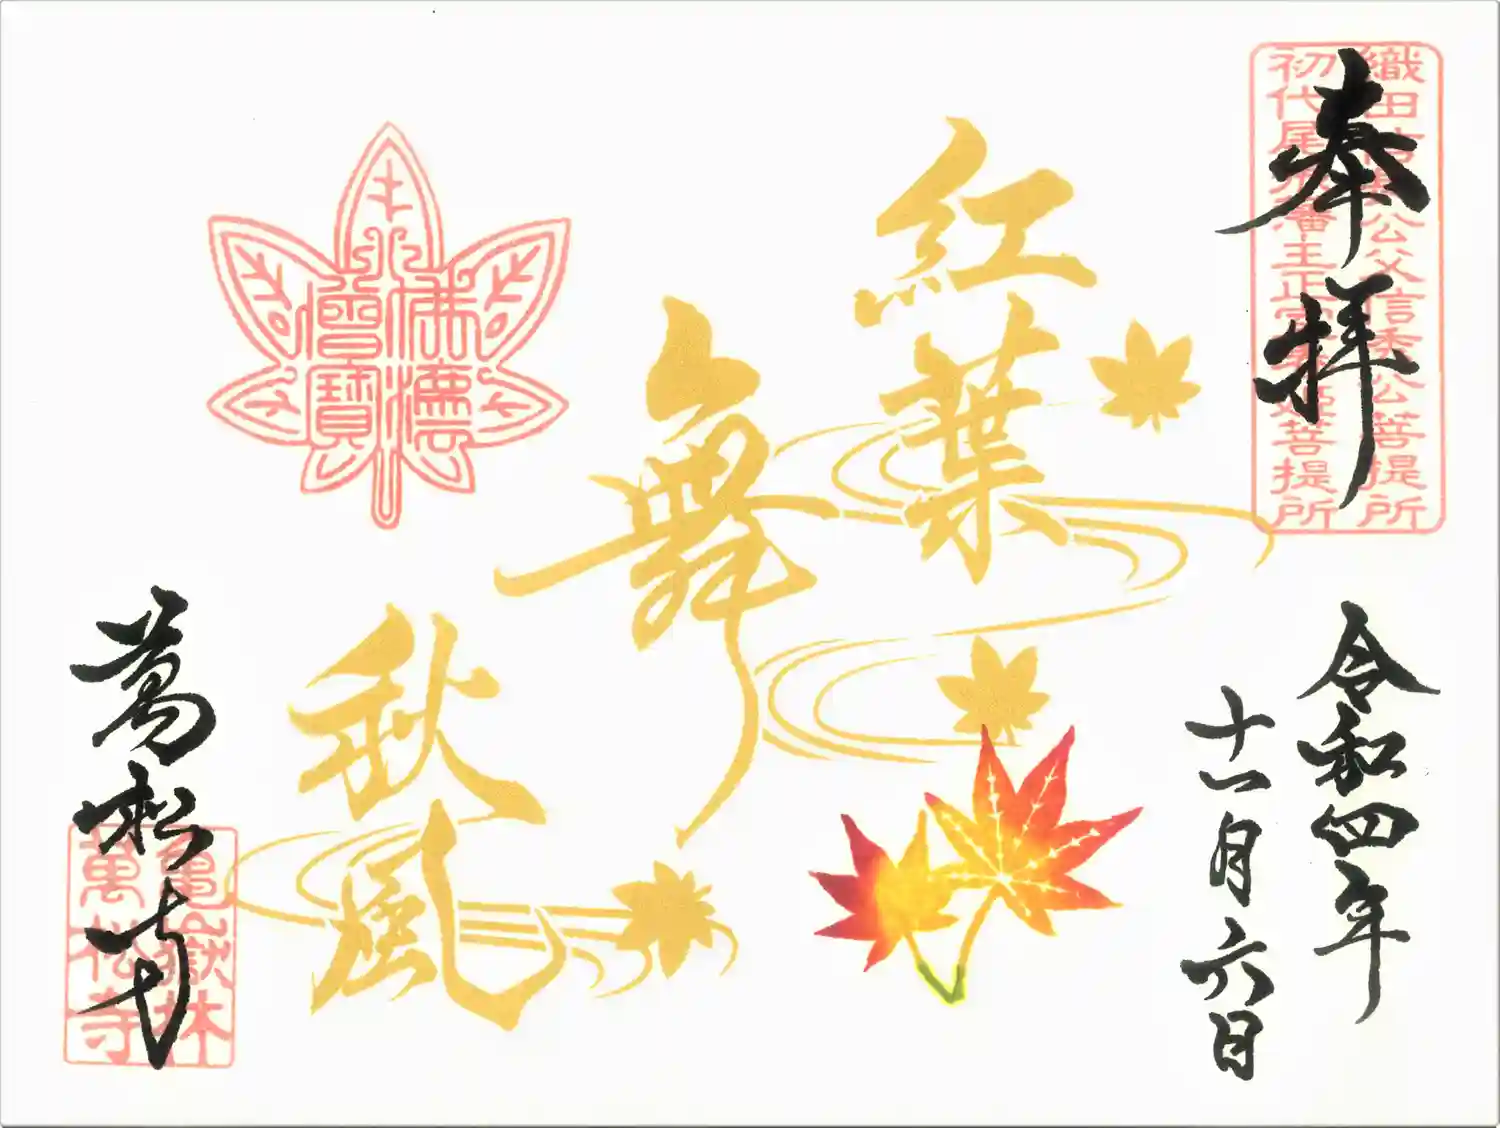 奉拝
織田信長公父信秀公菩提所
初代尾張藩主正室春姫菩提所
令和四年
十一月六日
紅葉
舞
秋風
佛法
僧寶
萬松寺
亀嶽林
萬松寺